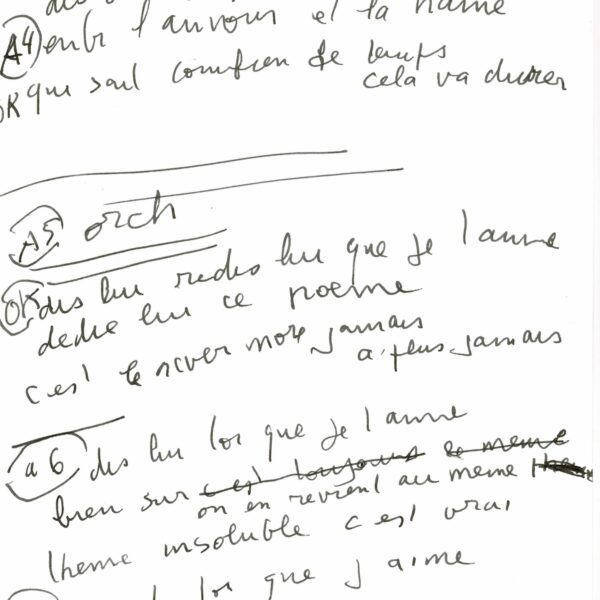 A4 entre l'amour et la haine
OK qui sait combien de temps
cela va durer
A5 orch
OK dis lui redis lui que je l'aime
dedie lui ce poeme
c'est le never more jamais
a. plus jamais
a 6 dis lui toi que je l'aime
bien sur c'est toujours le meme
on en revient au meme
theme insoluble c'est vrai
toi que j'aime